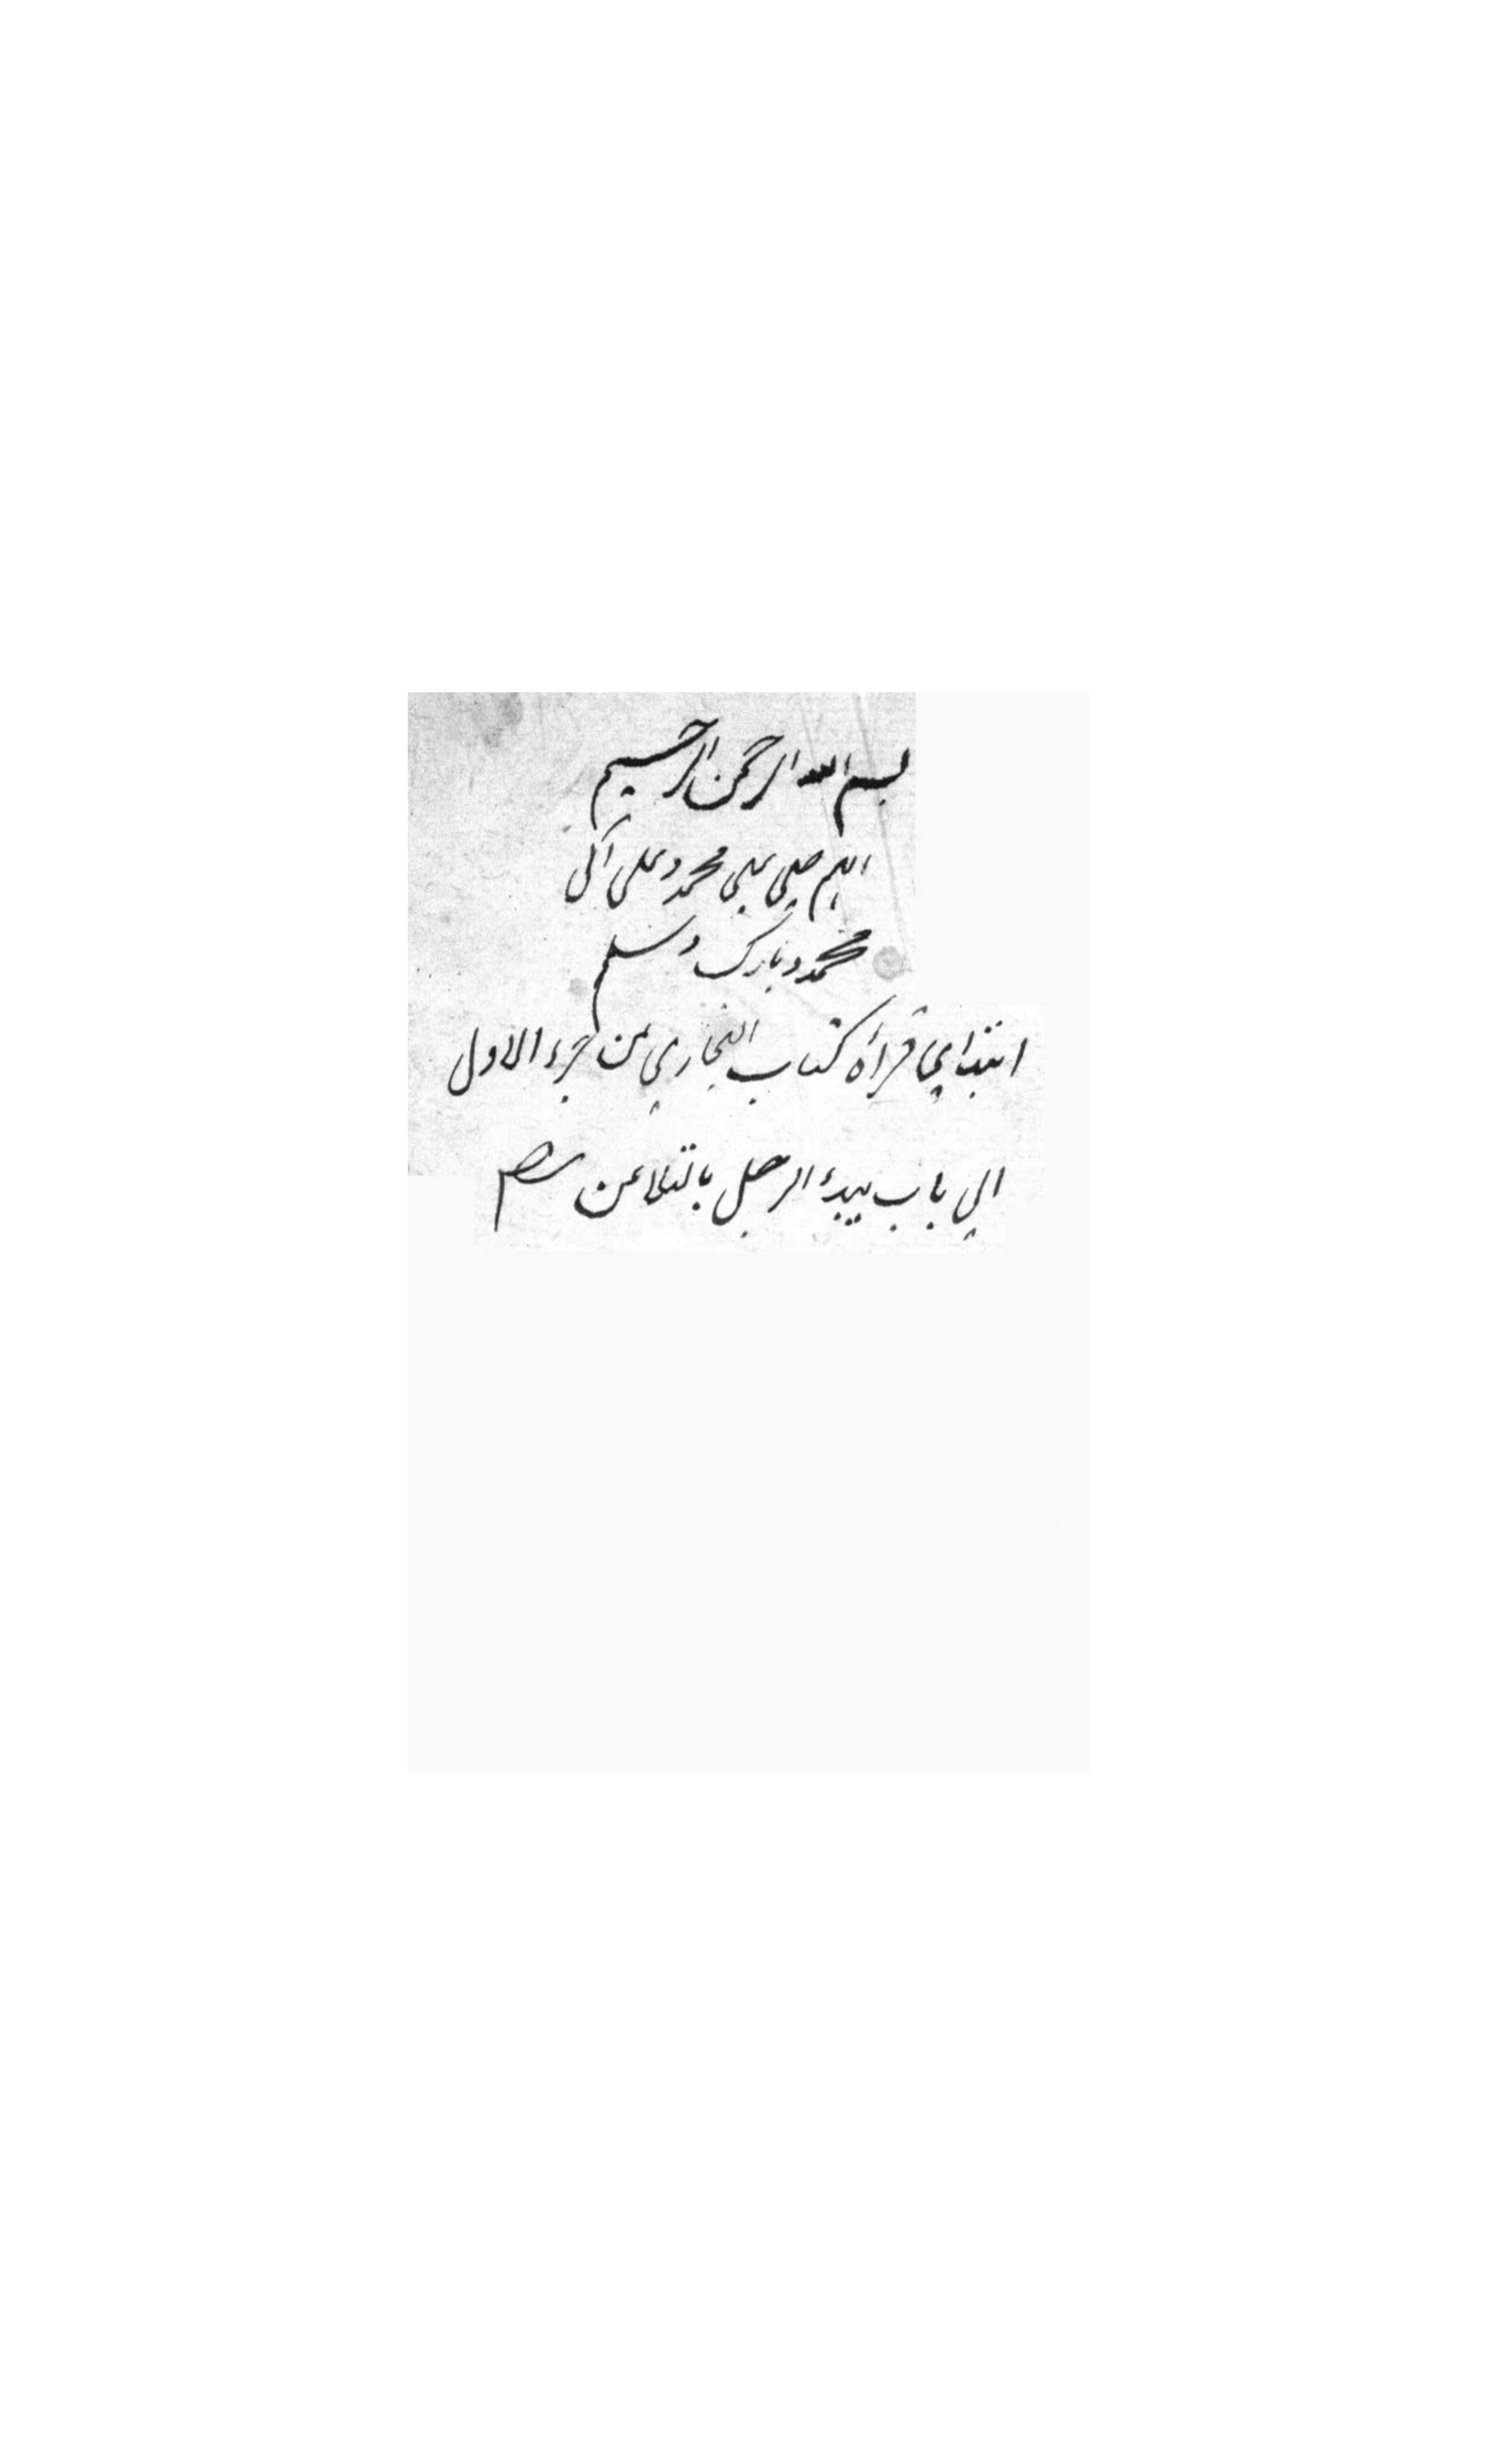 بسم الله الرحمن الرحيم
اللهم صلی علی محمد وعلی آل
محمد وبارک وسلم
ابتدایی قرأة کتاب البخاري من جزء الاول
الي باب يبدء الرجل بالتلاعن